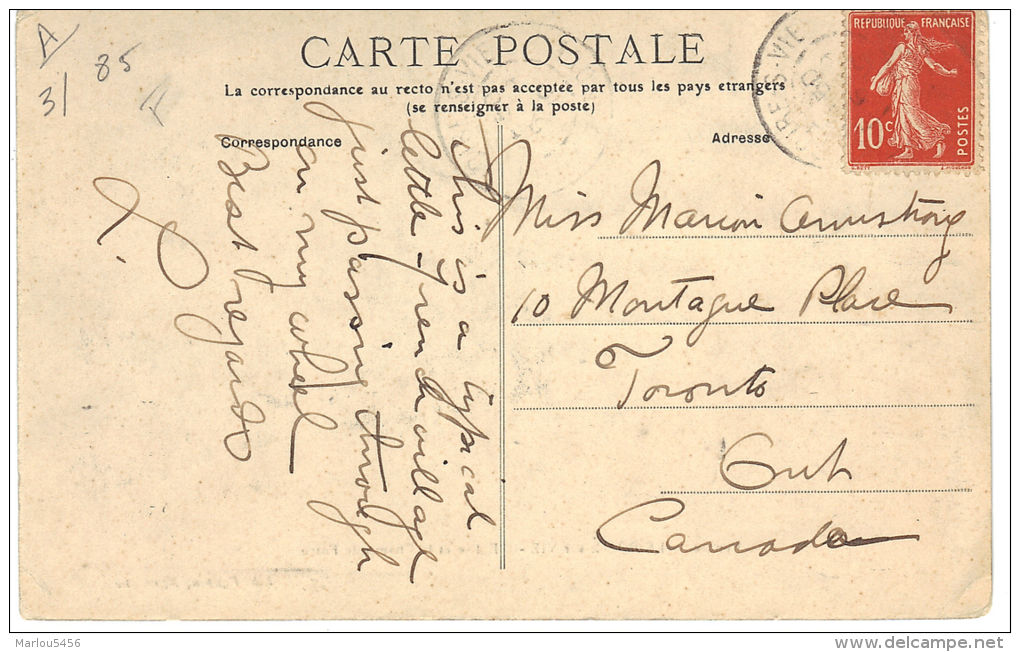 A
31
85
CARTE POSTALE
La correspondance au recto n'est pas acceptée par tous les pays étrangers
(se renseigner à la poste)
Correspondance
Adresse
RÉPUBLIQUE FRANÇAISE
10c
POSTES
This is a typical
little French village
just passing through
on my wheel
Best regards
Miss Marion Armstrong
10 Montague Place
Toronto
Ont
Canada
Marlou5456
www.delcampe.net